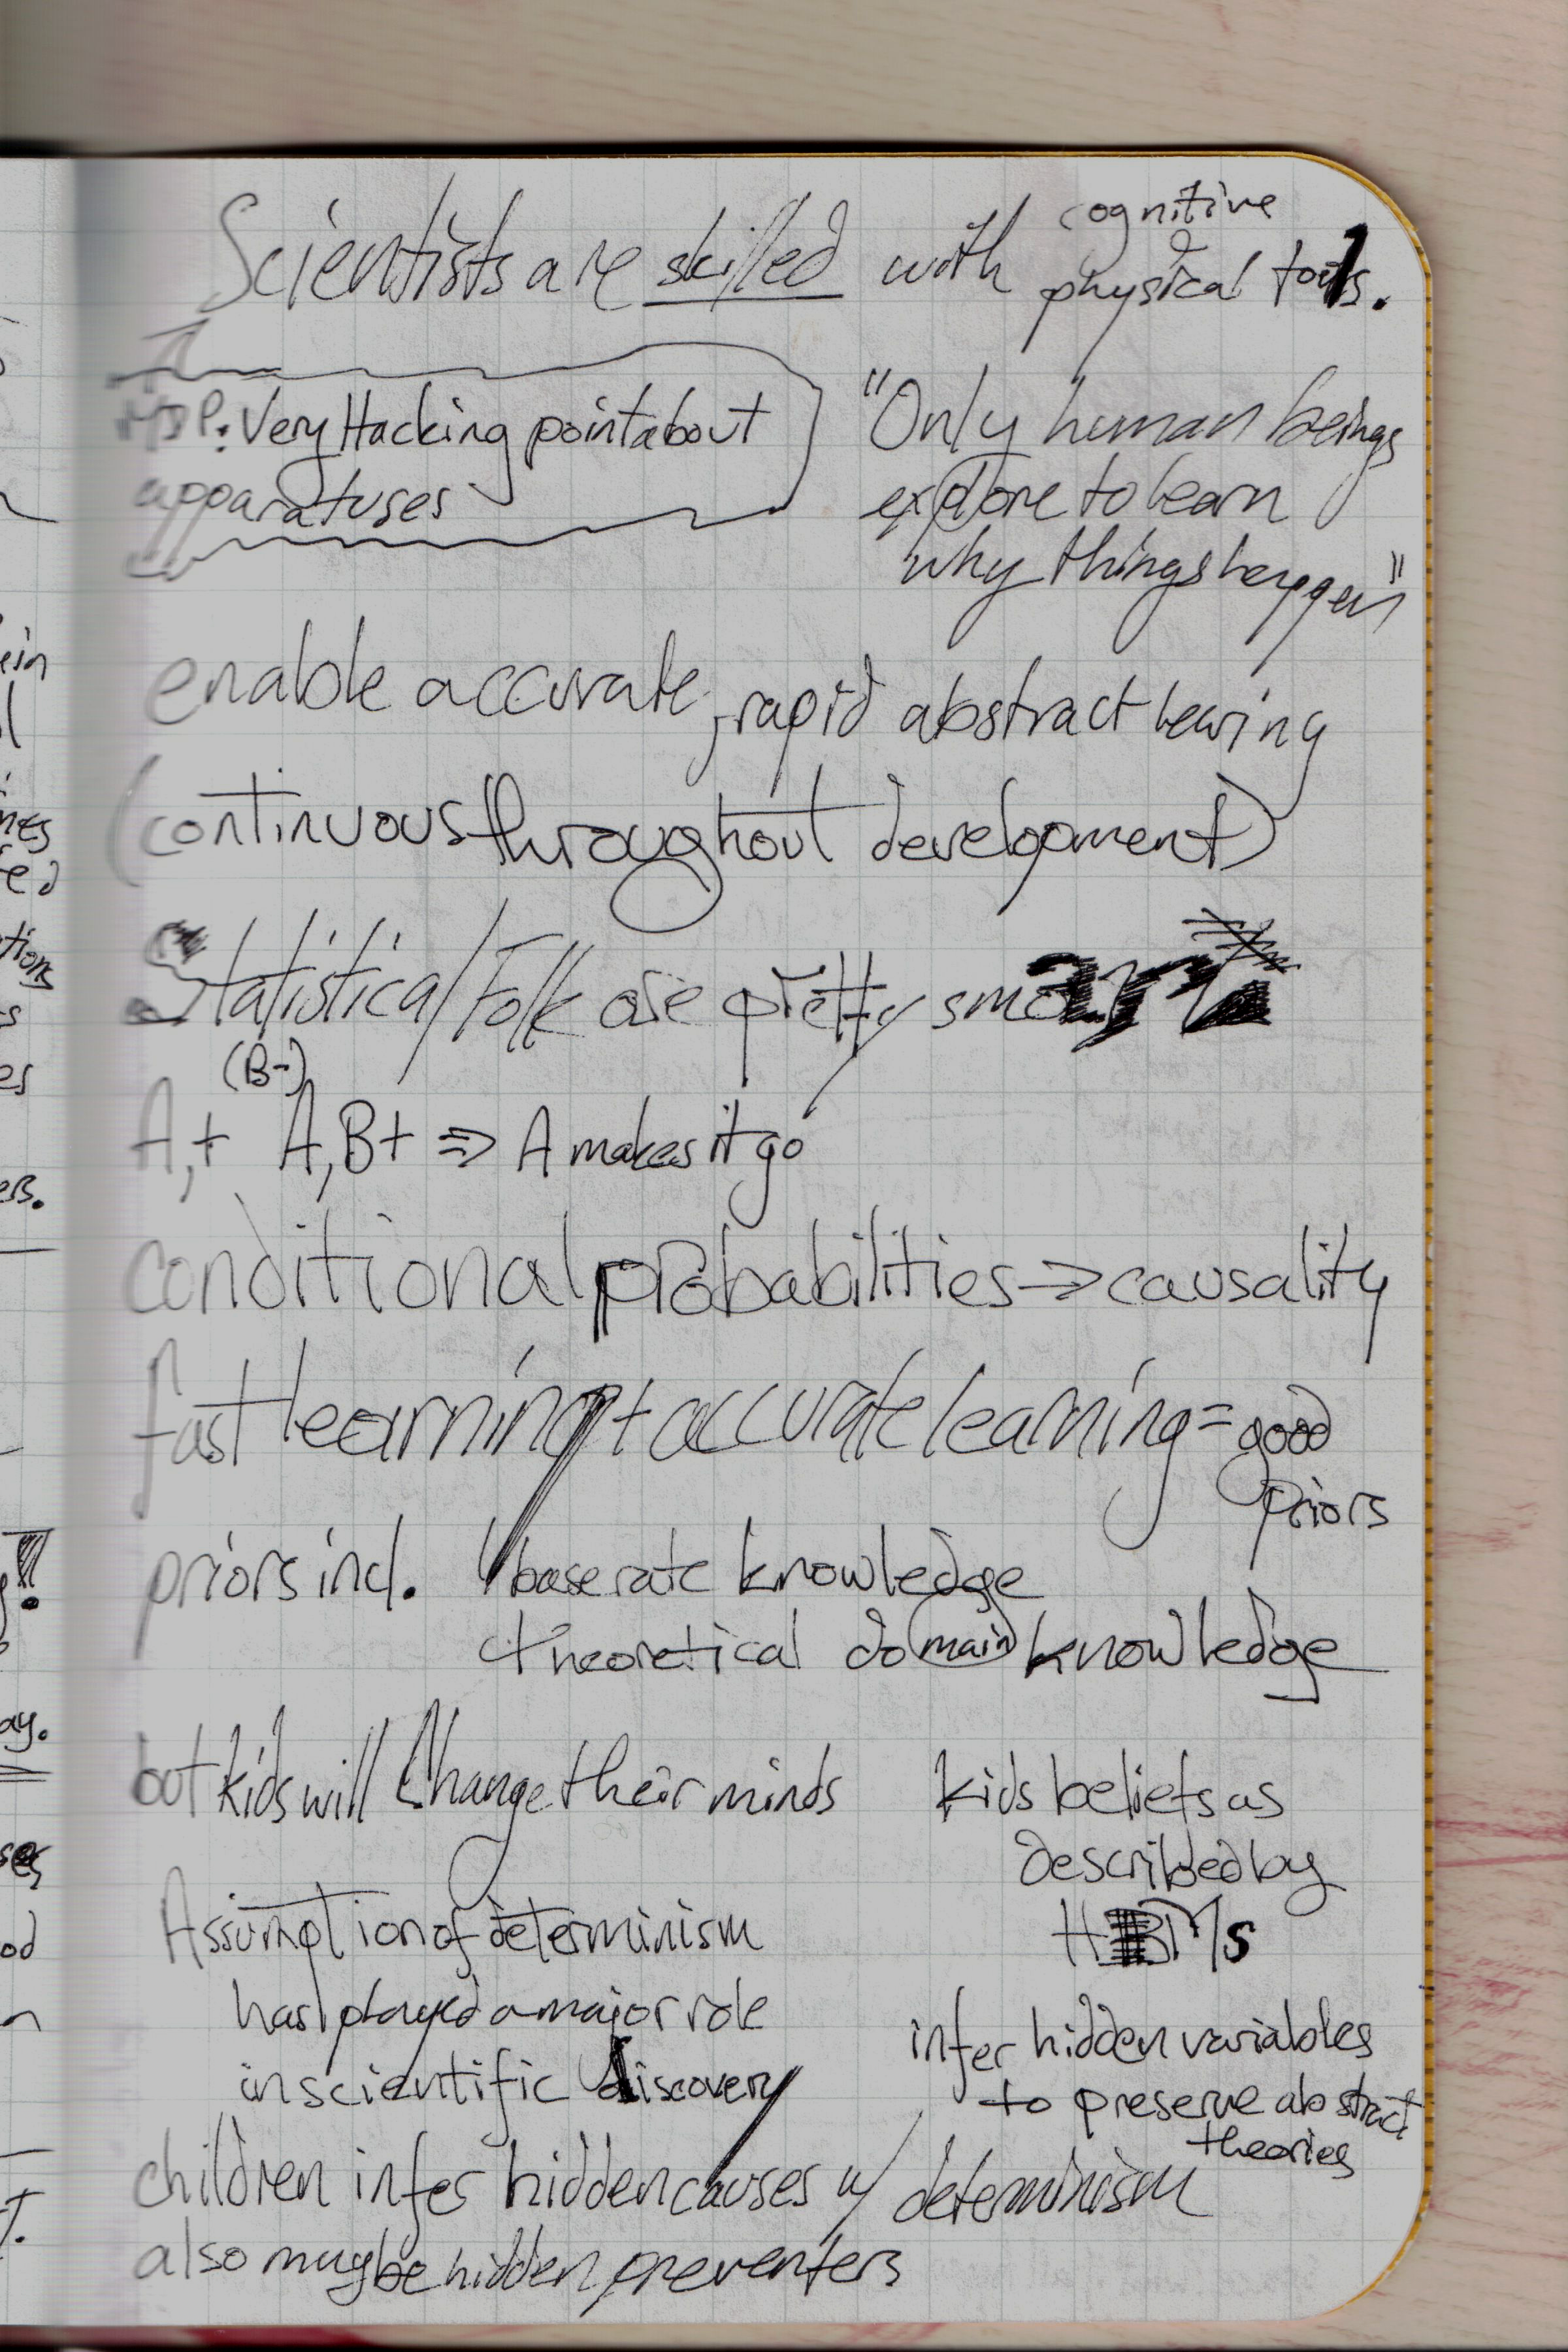 cognitive
Scientists are skilled with & physical tools.
MJP: Very Hacking point about
apparatuses
"Only human beings
explore to learn
why things happen"
enable accurate, rapid abstract learing
(continuous throughout development)
Statistical Folk are pretty smart
(B-)
A,+ A,B+ => A makes it go
conditional probabilities => causality
fast learning + accurate learning = good
priors
priors incl. base rate knowledge
theoretical domain knowledge
but kids will change their minds
kids beliefs as
described by
HBMs
Assumption of determinism
has played a major role
in scientific discovery
infer hidden variables
to preserve abstract
theories
children infer hidden causes w/ determinism
also maybe hidden preventers